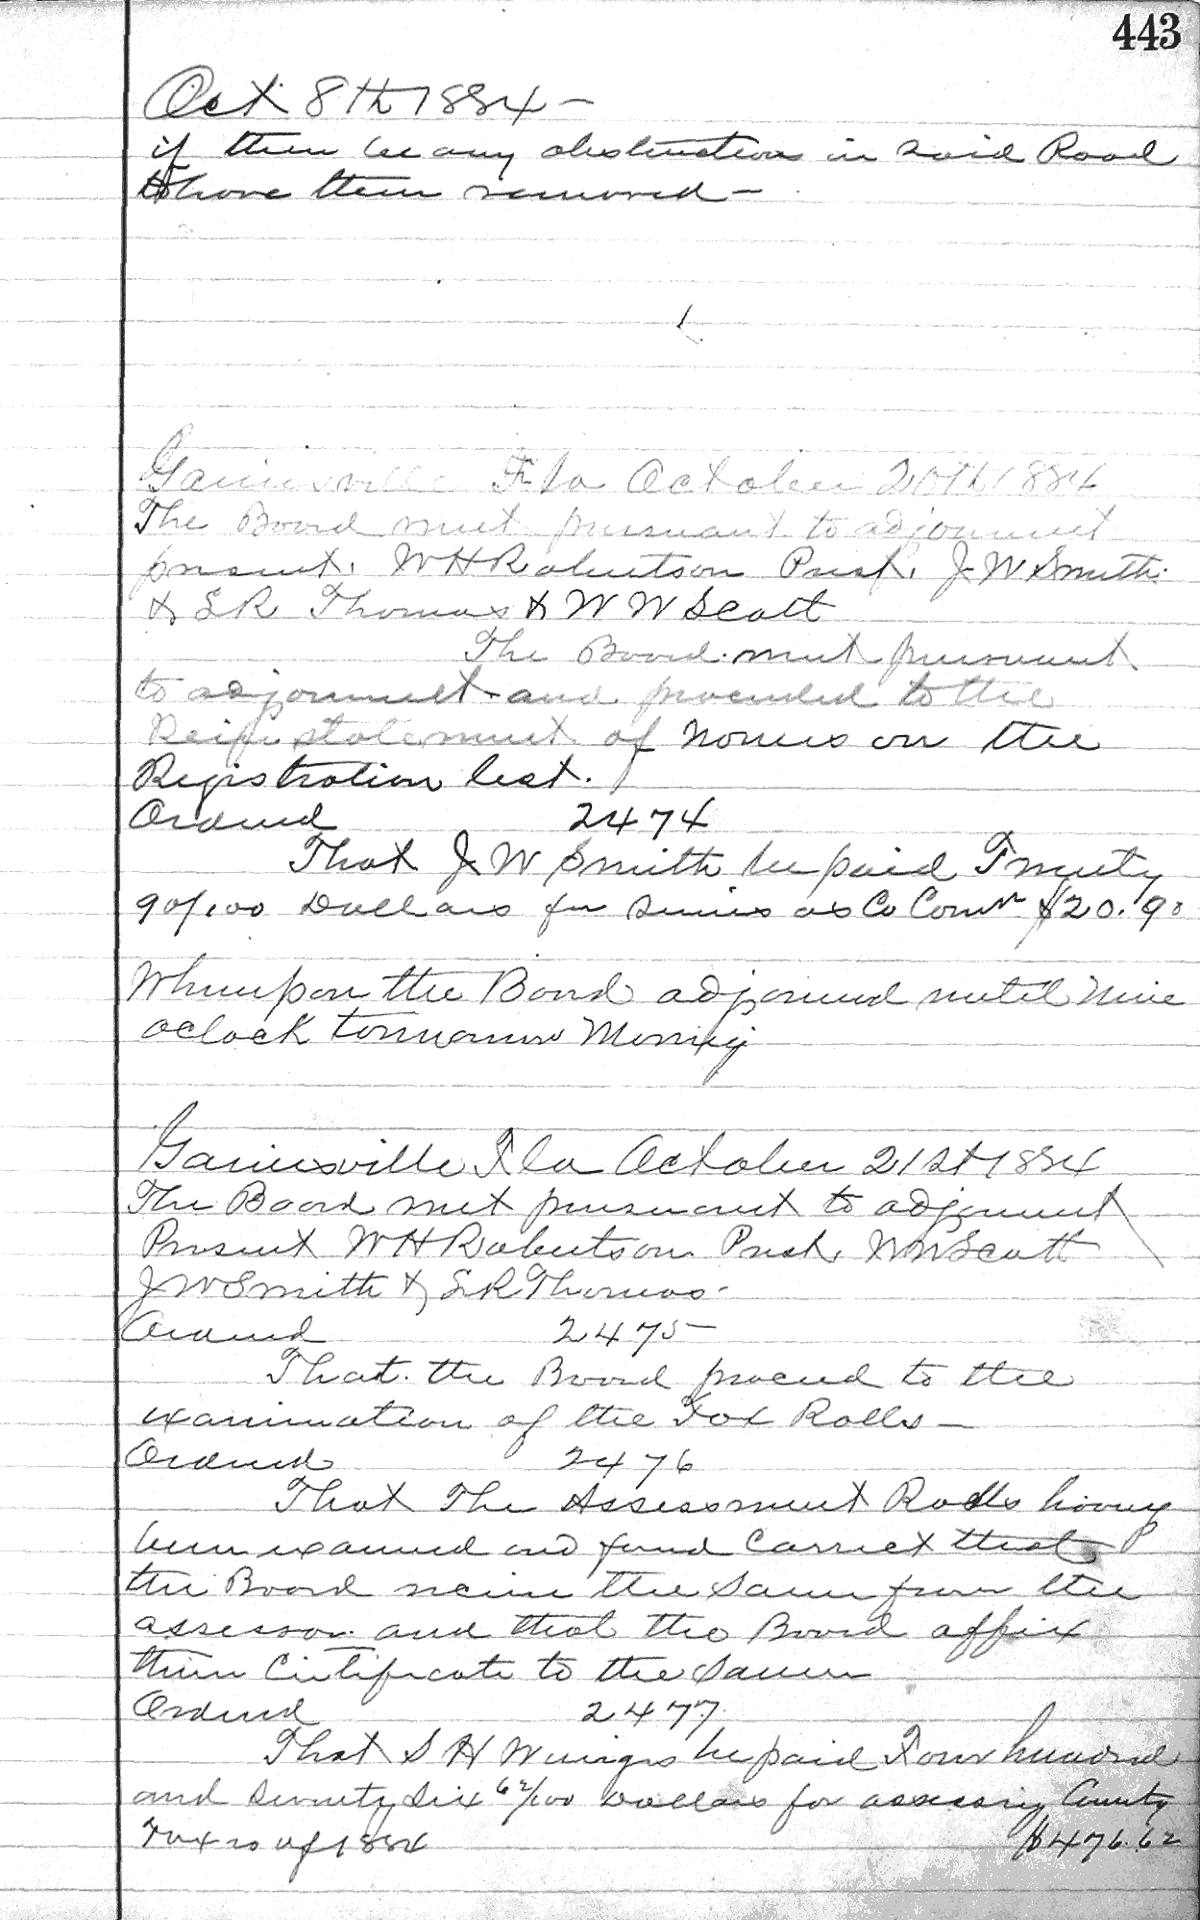 443
Oct 8th 1884 -
if there be any obstructions in said Road
to have them removed -
Gainesville Fla October 20th 1884
The Board met pursuant to adjournment
present. W H Robertson Prest. J W Smith
& S R Thomas & W W Scott
The Board met pursuant
to adjournment and proceeded to the
statement of Names on the
Registration list.
Ordered 2474
That J W Smith be paid Twenty
90/100 Dollars for services as Co Comr $20.90
Whereupon the Board adjourned until Nine
oclock tomorrow Morning
Gainesville Fla October 21st 1884
The Board met pursuant to adjournment
Present W H Robertson Prest. W W Scott
J W Smith & S R Thomas -
Ordered 2475
That the Board proceed to the
examination of the Tax Rolls -
Ordered 2476
That The Assessment Rolls having
been examined and found Correct that
the Board receive the same from the
assessor and that the Board affix
their Certificate to the same
Ordered 2477
That S H Wienges be paid Four hundred
and seventy six 62/100 Dollars for assessing County
Taxes of 1884 $476.62